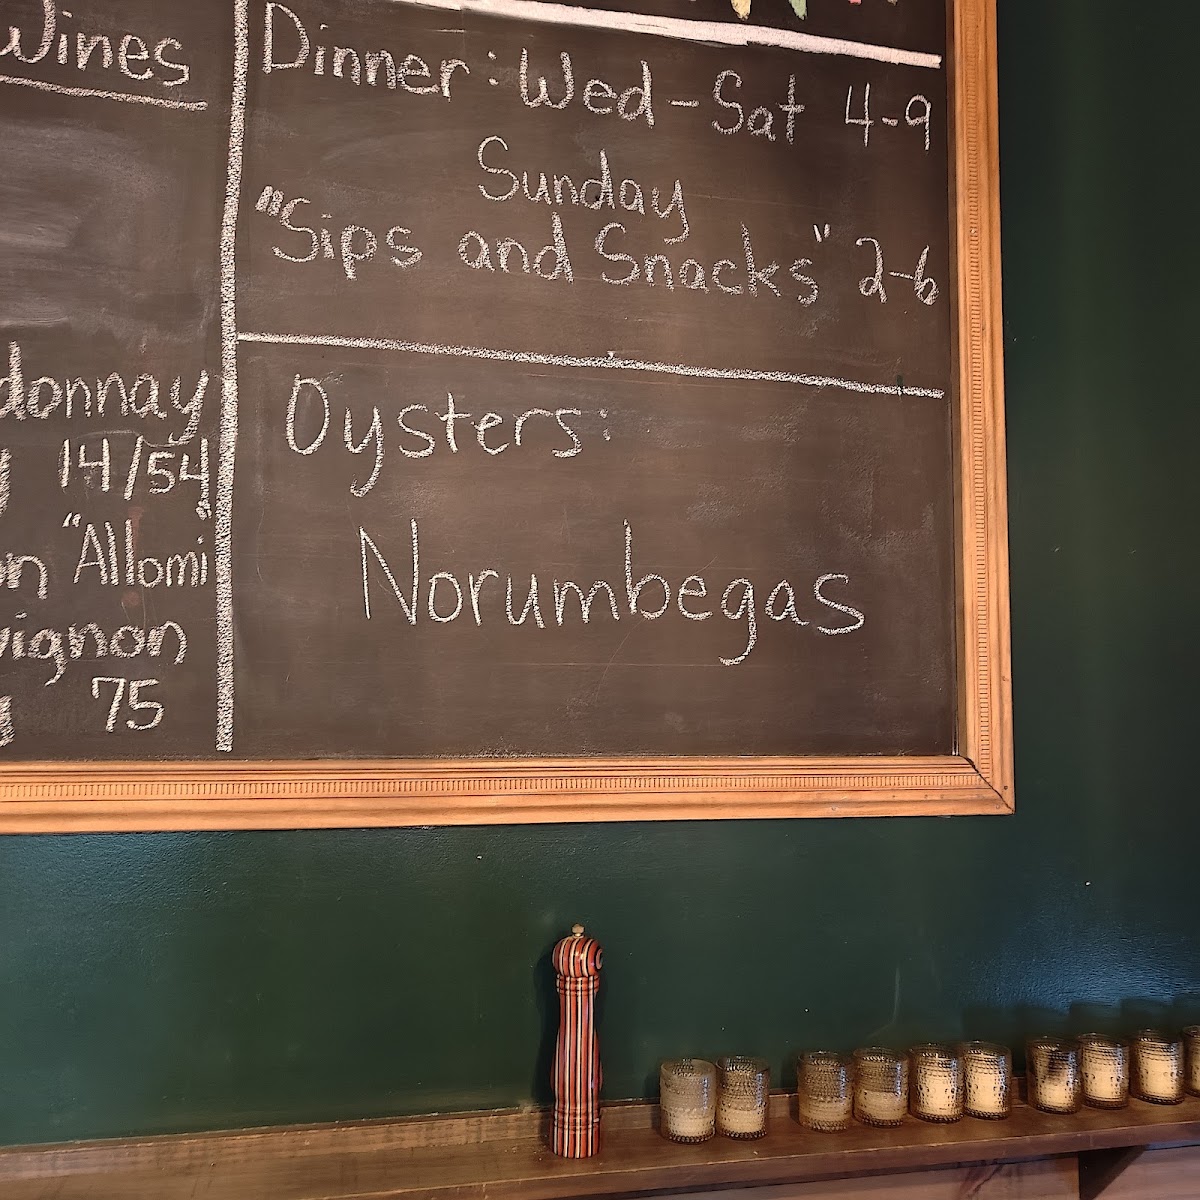 Wines
14/54
"Allomi"
75
Dinner: Wed-Sat 4-9
Sunday
"Sips and Snacks" 2-6
Oysters:
Norumbegas